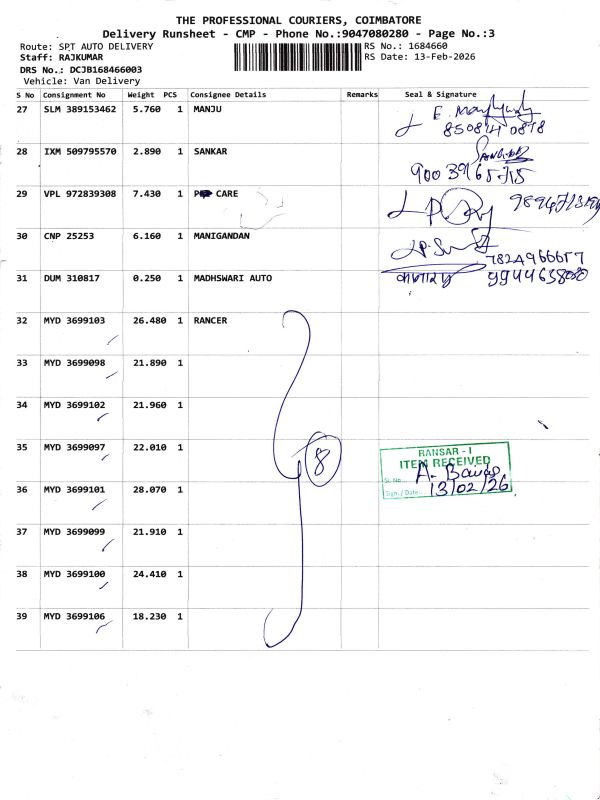 THE PROFESSIONAL COURIERS, COIMBATORE
Delivery Runsheet - CMP - Phone No.:9047080280 - Page No.:3
Route: SPT AUTO DELIVERY RS No.: 1684660
Staff: RAJKUMAR RS Date: 13-Feb-2026
DRS No.: DCJB168466003
Vehicle: Van Delivery
S No Consignment No Weight PCS Consignee Details Remarks Seal & Signature
27 SLM 389153462 5.760 1 MANJU
28 IXM 509795570 2.890 1 SANKAR
29 VPL 972839308 7.430 1 CARE
30 CNP 25253 6.160 1 MANIGANDAN
7824966657
31 DUM 310817 0.250 1 MADHSWARI AUTO
32 MYD 3699103 26.480 1 RANCER
33 MYD 3699098 21.890 1
34 MYD 3699102 21.960 1
35 MYD 3699097 22.010 1 8 RANSAR - I
ITEM RECEIVED
Sl. No
36 MYD 3699101 28.070 1 Sign. / Date 13/02/26
37 MYD 3699099 21.910 1
38 MYD 3699100 24.410 1
39 MYD 3699106 18.230 1